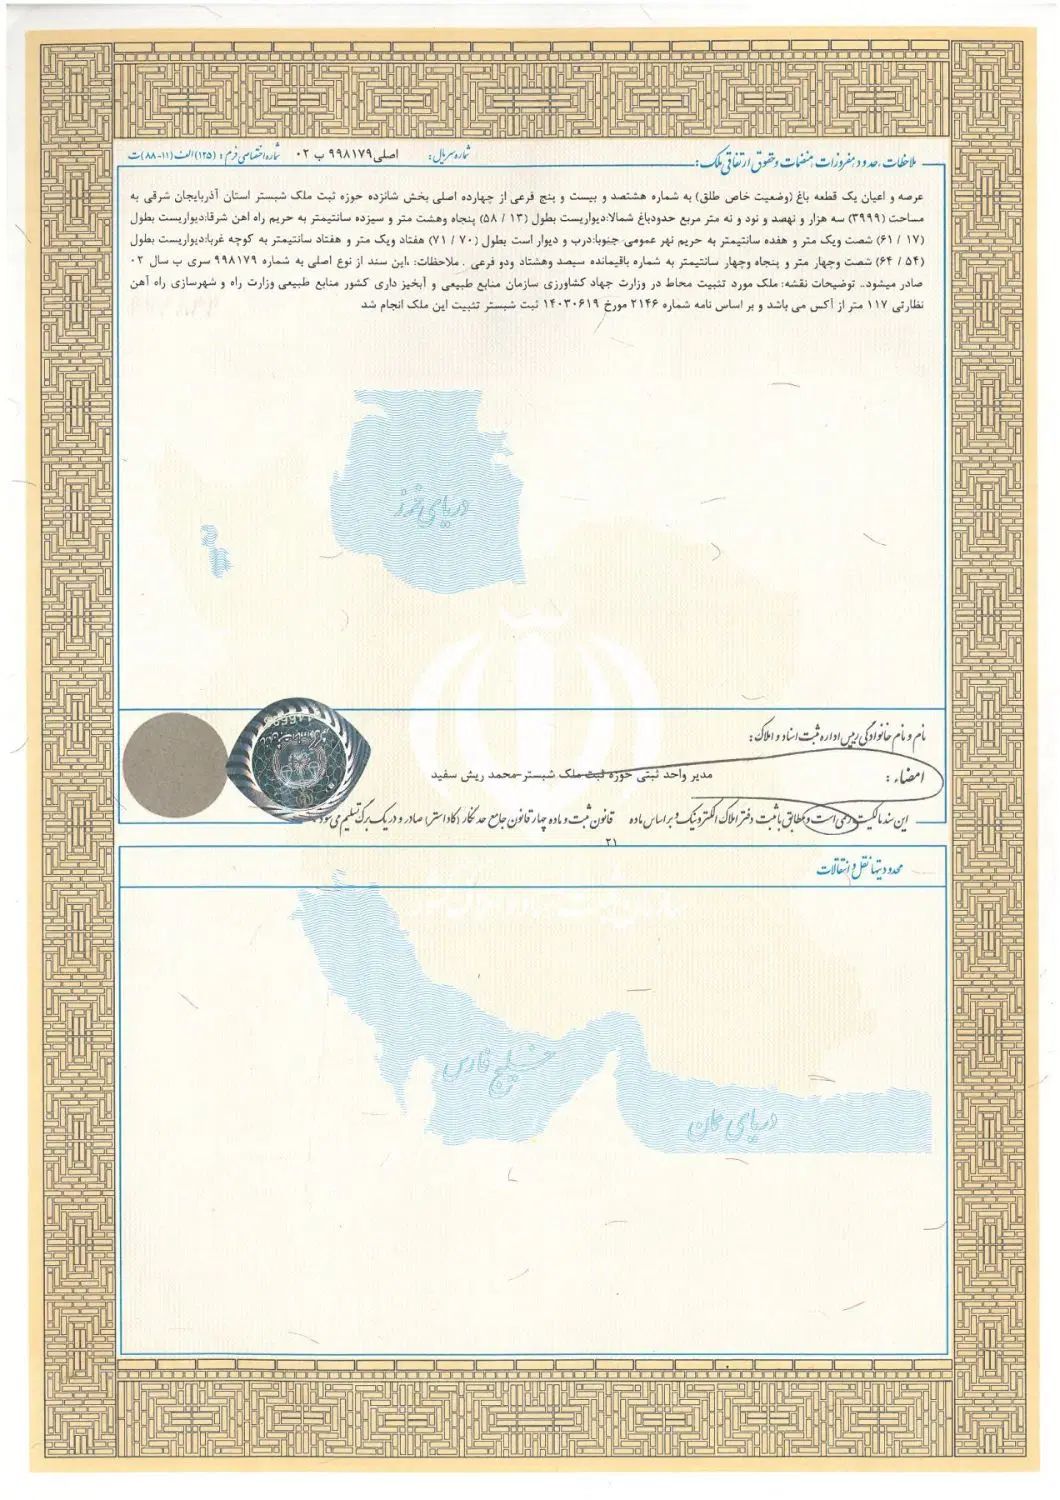 ملاحظات، حدود، مفروزات، منضمات و حقوق ارتفاقی ملک:
شماره سریال: اصلی ۹۹۸۱۷۹ ب ۰۲ شماره اختصاصی فرم: (۱۲۵) الف (۱۱-۸۸) ت
عرصه و اعیان یک قطعه باغ (وضعیت خاص طلق) به شماره هشتصد و بیست و پنج فرعی از چهارده اصلی بخش شانزده حوزه ثبت ملک شبستر استان آذربایجان شرقی به
مساحت (۳۹۹۹) سه هزار و نهصد و نود و نه متر مربع حدودباغ شمالا:دیواریست بطول (۱۳ / ۵۸) پنجاه وهشت متر و سیزده سانتیمتر به حریم راه اهن شرقا:دیواریست بطول
(۱۷ / ۶۱) شصت ویک متر و هفده سانتیمتر به حریم نهر عمومی. جنوبا:درب و دیوار است بطول (۷۰ / ۷۱) هفتاد ویک متر و هفتاد سانتیمتر به کوچه غربا:دیواریست بطول
(۵۴ / ۶۴) شصت وچهار متر و پنجاه وچهار سانتیمتر به شماره باقیمانده سیصد وهشتاد ودو فرعی . ملاحظات: ،این سند از نوع اصلی به شماره ۹۹۸۱۷۹ سری ب سال ۰۲
صادر میشود.. توضیحات نقشه: ملک مورد تثبیت محاط در وزارت جهاد کشاورزی سازمان منابع طبیعی و آبخیز داری کشور منابع طبیعی وزارت راه و شهرسازی راه آهن
نظارتی ۱۱۷ متر از آکس می باشد و بر اساس نامه شماره ۲۱۴۶ مورخ ۱۴۰۳۰۶۱۹ ثبت شبستر تثبیت این ملک انجام شد
دریای خزر
نام و نام خانوادگی رییس اداره ثبت اسناد و املاک:
امضاء:
مدیر واحد ثبتی حوزه ثبت ملک شبستر-محمد ریش سفید
این سند مالکیت رسمی است و مطابق با ثبت دفتر املاک الکترونیک و بر اساس ماده قانون ثبت و ماده چهار قانون جامع حدنگار (کاداستر) صادر و در یک برگ تسلیم می شود.
۲۱
محدودیتها نقل و انتقالات
خلیج فارس
دریای عمان